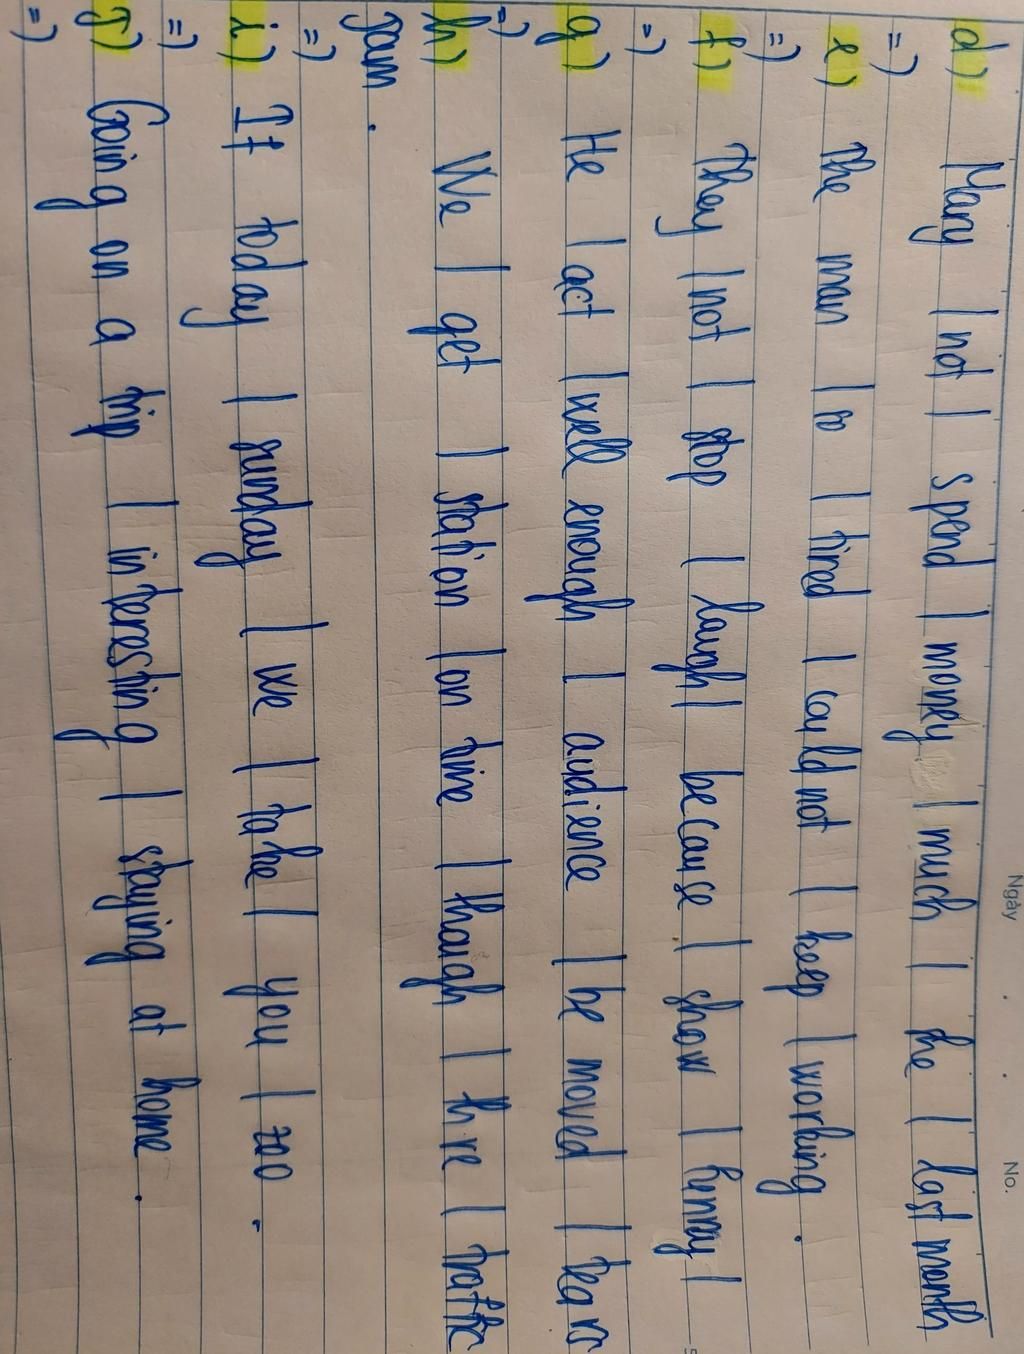 Ngày No.
d) Mary / not / spend / money / much / the / last month
=)
e) The man / so / tired / could not / keep / working.
=)
f) They / not / stop / laugh / because / show / funny /
=)
g) He / act / well enough / audience / be moved / tears
=)
h) We / get / station / on time / though / thre / traffic
jam.
=)
i) If today / sunday / we / take / you / zoo.
=)
J) Going on a trip / interesting / staying at home.
=)